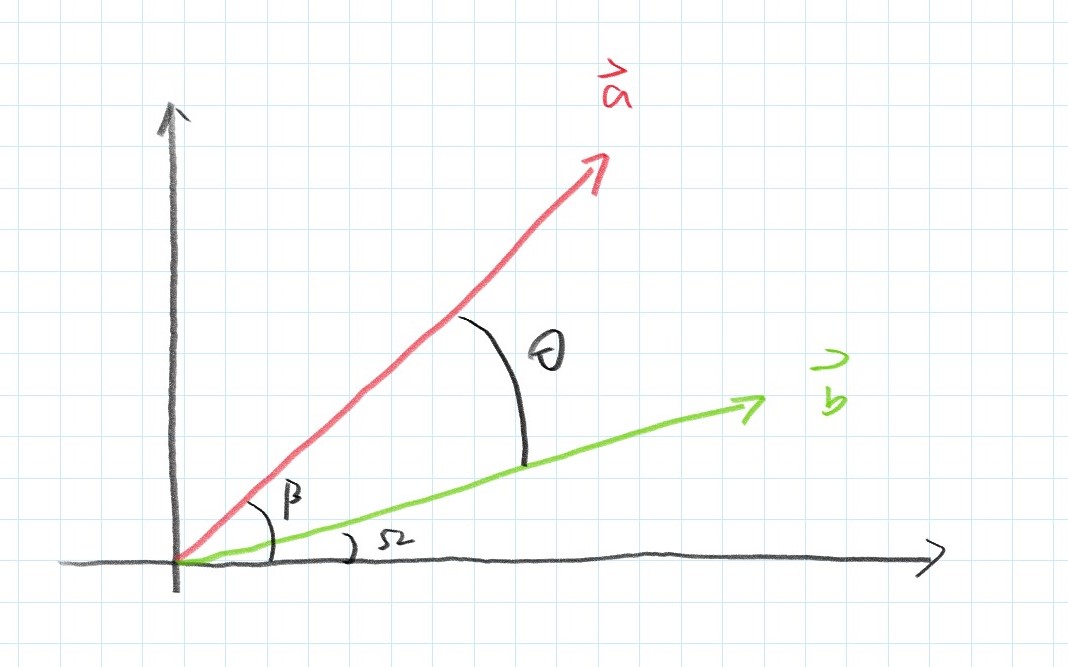 a⃗
θ
b⃗
β
Ω